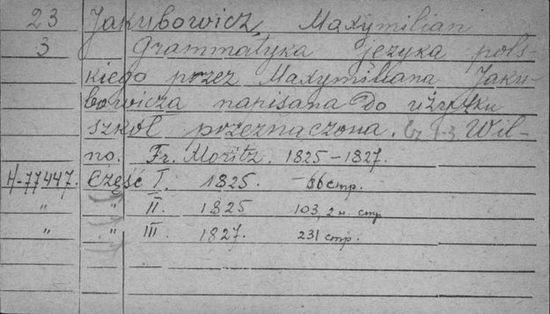 23 Jakubowicz, Maxymilian
3 Grammatyka języka pols-
kiego przez Maxymiliana Jaku-
bowicza napisana do użytku
szkół przeznaczona. Cz 1-3 Wil-
no. Fr. Moritz. 1825-1827.
H-77447. Część I. 1825. 66 stp.
" " II. 1825 103, 2 н. стр
" " III. 1827. 231 стр.